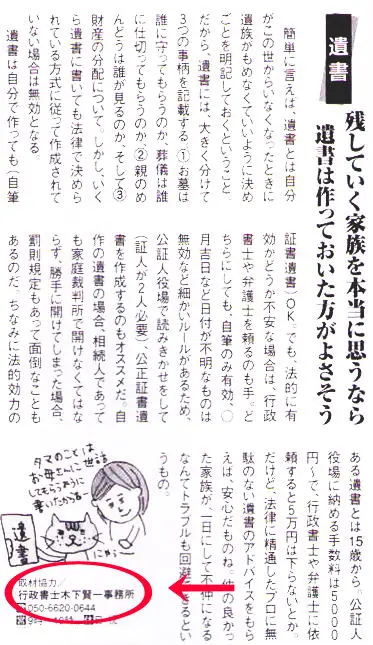 遺書
残していく家族を本当に思うなら
遺書は作っておいた方がよさそう
簡単に言えば、遺書とは自分
がこの世からいなくなったときに
遺族がもめなくていいように決め
ごとを明記しておくということ
だから、遺書には、大きく分けて
3つの事柄を記載する。①お墓は
誰に守ってもらうのか、葬儀は誰
に仕切ってもらうのか、②親のめ
んどうは誰が見るのか、そして③
財産の分配について。しかし、いく
ら遺書に書いても法律で決めら
れている方式に従って作成されて
いない場合は無効となる。
遺書は自分で作っても(自筆
証書遺書)OK。でも、法的に有
効かどうか不安な場合は、行政
書士や弁護士を頼るのも手。ど
ちらにしても、自筆のみ有効、〇
月吉日など日付が不明なものは
無効など細かいルールがあるため、
公証人役場で読みきかせをして
(証人が2人必要)、公正証書遺
書を作成するのもオススメだ。自
作の遺書の場合、相続人であって
も家庭裁判所で開けなくてはな
らず、勝手に開けてしまった場合、
罰則規定もあって面倒なことも
あるのだ。ちなみに法的効力の
ある遺書とは15歳から。公証人
役場に納める手数料は5000
円〜で、行政書士や弁護士に依
頼すると5万円は下らないとか。
だけど、法律に精通したプロに無
駄のない遺書のアドバイスをもら
えば、安心だものね。仲の良かっ
た家族が、一日にして不仲になる
なんてトラブルも回避できるとい
うもの。
タマのことは
お母さんに世話
してもらうように
書いたからね
遺書
取材協力/
行政書士木下賢一事務所
050-6620-0644